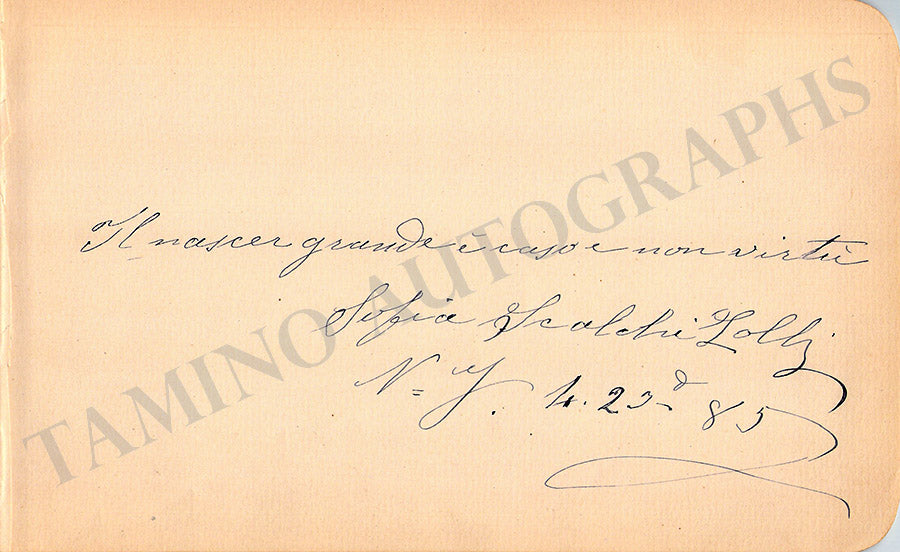 Il nascer grande è caso e non virtù
Sofia Scalchi Lolli
N= Y. 4. 23d 85
TAMINO AUTOGRAPHS